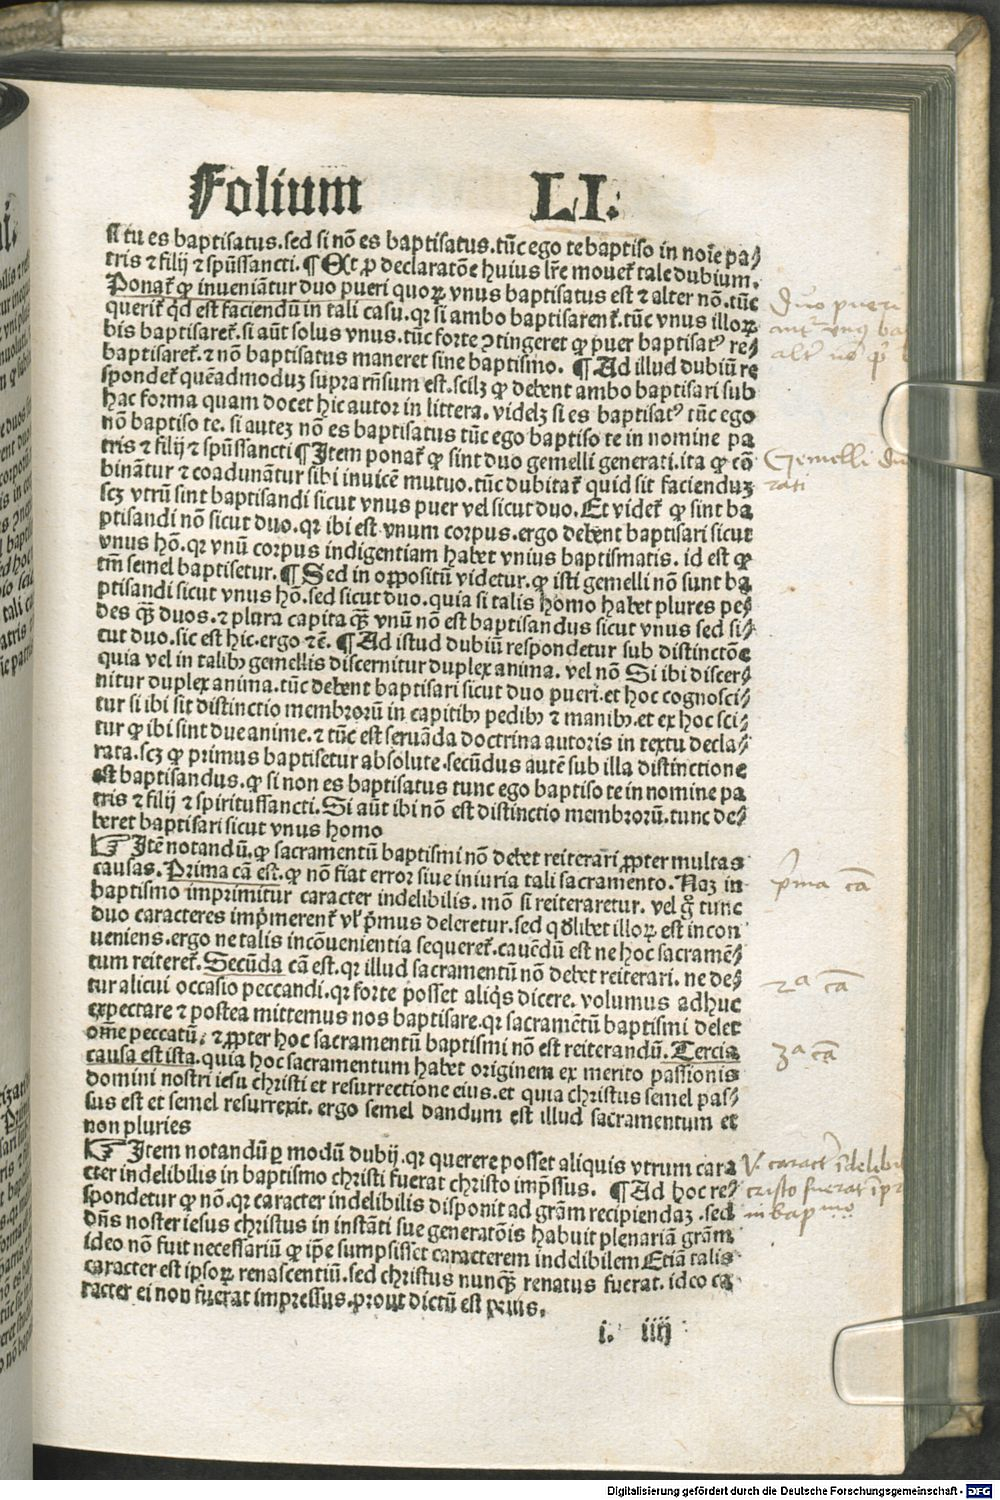 Folium LI.
¶ tu es baptisatus.sed si nō es baptisatus.tūc ego te baptiso in noīe pa⸗
tris ⁊ filij ⁊ spūssancti.¶ Et ꝓ declaratōe huius lr̄e mouet̄ tale dubium.
Ponat̄ ꝙ inueniātur duo pueri quoꝝ vnus baptisatus est ⁊ alter nō.tūc
querit̄ qd̄ est faciendū in tali casu.qꝛ si ambo baptisarent̄.tūc vnus illoꝝ
bis baptisaret̄.si aūt solus vnus.tūc forte ↄtingeret ꝙ puer baptisatꝰ re⸗
baptisaret̄.⁊ nō baptisatus maneret sine baptismo. ¶ Ad illud dubiū re
spondet̄ quēadmoduꝫ supra rn̄sum est.scilꝫ ꝙ debent ambo baptisari sub
hac forma quam docet hic autor in littera.videlꝫ si es baptisatꝰ tūc ego
nō baptiso te.si auteꝫ nō es baptisatus tūc ego baptiso te in nomine pa
tris ⁊ filij ⁊ spūssancti ¶ Item ponat̄ ꝙ sint duo gemelli generati.ita ꝙ cō
binātur ⁊ coadunātur sibi inuicē mutuo.tūc dubitat̄ quid sit facienduꝫ
scꝫ vtrū sint baptisandi sicut vnus puer vel sicut duo.Et videt̄ ꝙ sint ba
ptisandi nō sicut duo.qꝛ ibi est vnum corpus.ergo debent baptisari sicut
vnus hō.qꝛ vnū corpus indigentiam habet vnius baptismatis.id est ꝙ
tm̄ semel baptisetur.¶ Sed in oppositū videtur.ꝙ isti gemelli nō sunt ba
ptisandi sicut vnus hō.sed sicut duo.quia si talis homo habet plures pe⸗
des q̄ꝫ duos.⁊ plura capita q̄ꝫ vnū nō est baptisandus sicut vnus sed si⸗
cut duo.sic est hic.ergo ⁊c̄. ¶ Ad istud dubiū respondetur sub distinctōe
quia vel in talibꝫ gemellis discernitur duplex anima. vel nō Si ibi discer⸗
nitur duplex anima.tūc debent baptisari sicut duo pueri.et hoc cognosci⸗
tur si ibi sit distinctio membrorū in capitibꝫ pedibꝫ ⁊ manibꝫ.et ex hoc sci⸗
tur ꝙ ibi sint due anime.⁊ tūc est seruāda doctrina autoris in textu decla⸗
rata.scꝫ ꝙ primus baptisetur absolute.secūdus autē sub illa distinctione
est baptisandus.ꝙ si non es baptisatus tunc ego baptiso te in nomine pa
tris ⁊ filij ⁊ spiritussancti.Si aūt ibi nō est distinctio membrorū.tunc de⸗
beret baptisari sicut vnus homo
☞ Itē notandū.ꝙ sacramentū baptismi nō debet reiterari ꝓpter multas
causas.Prima cā est.ꝙ nō fiat error siue iniuria tali sacramento.Naꝫ in
baptismo imprimitur caracter indelibilis. mō si reiteraretur. vel g̊ tunc
duo caracteres imp̄merent̄ vl̓ p̄mus deleretur.sed qd̓libet illoꝝ est incon
ueniens.ergo ne talis incōuenientia sequeret̄.cauēdū est ne hoc sacramē⸗
tum reiteret̄.Secūda cā est.qꝛ illud sacramentū nō debet reiterari. ne de⸗
tur alicui occasio peccandi.qꝛ forte posset aliq̓s dicere. volumus adhuc
expectare ⁊ postea mittemus nos baptisare.qꝛ sacramētū baptismi delet
om̄e peccatū; ⁊ ꝓpter hoc sacramentū baptismi nō est reiterandū.Tercia
causa est ista.quia hoc sacramentum habet originem ex merito passionis
domini nostri iesu christi et resurrectione eius.et quia christus semel pas⸗
sus est et semel resurrexit. ergo semel dandum est illud sacramentum et
non pluries
☞ Item notandū ꝑ modū dubij.qꝛ querere posset aliquis vtrum cara
cter indelibilis in baptismo christi fuerat christo imp̄ssus. ¶ Ad hoc re⸗
spondetur ꝙ nō.qꝛ caracter indelibilis disponit ad grām recipiendaꝫ.sed
dn̄s noster iesus christus in instāti sue generatōis habuit plenariā grām
ideo nō fuit necessariū ꝙ ip̄e sumpsisset caracterem indelibilem Etiā talis
caracter est ipsoꝝ renascentiū.sed christus nunq̄ꝫ renatus fuerat. ideo ca⸗
racter ei non fuerat impressus.prout dictū est prius.
i. iiij
Duo pueri
alt̄ nō
Gemelli
rati
p̄ma cā
2ᵃ cā
3ᵃ cā
V. caract̄ īdelibi
cristo fuerat īp̄
in bap mo
Digitalisierung gefördert durch die Deutsche Forschungsgemeinschaft - DFG